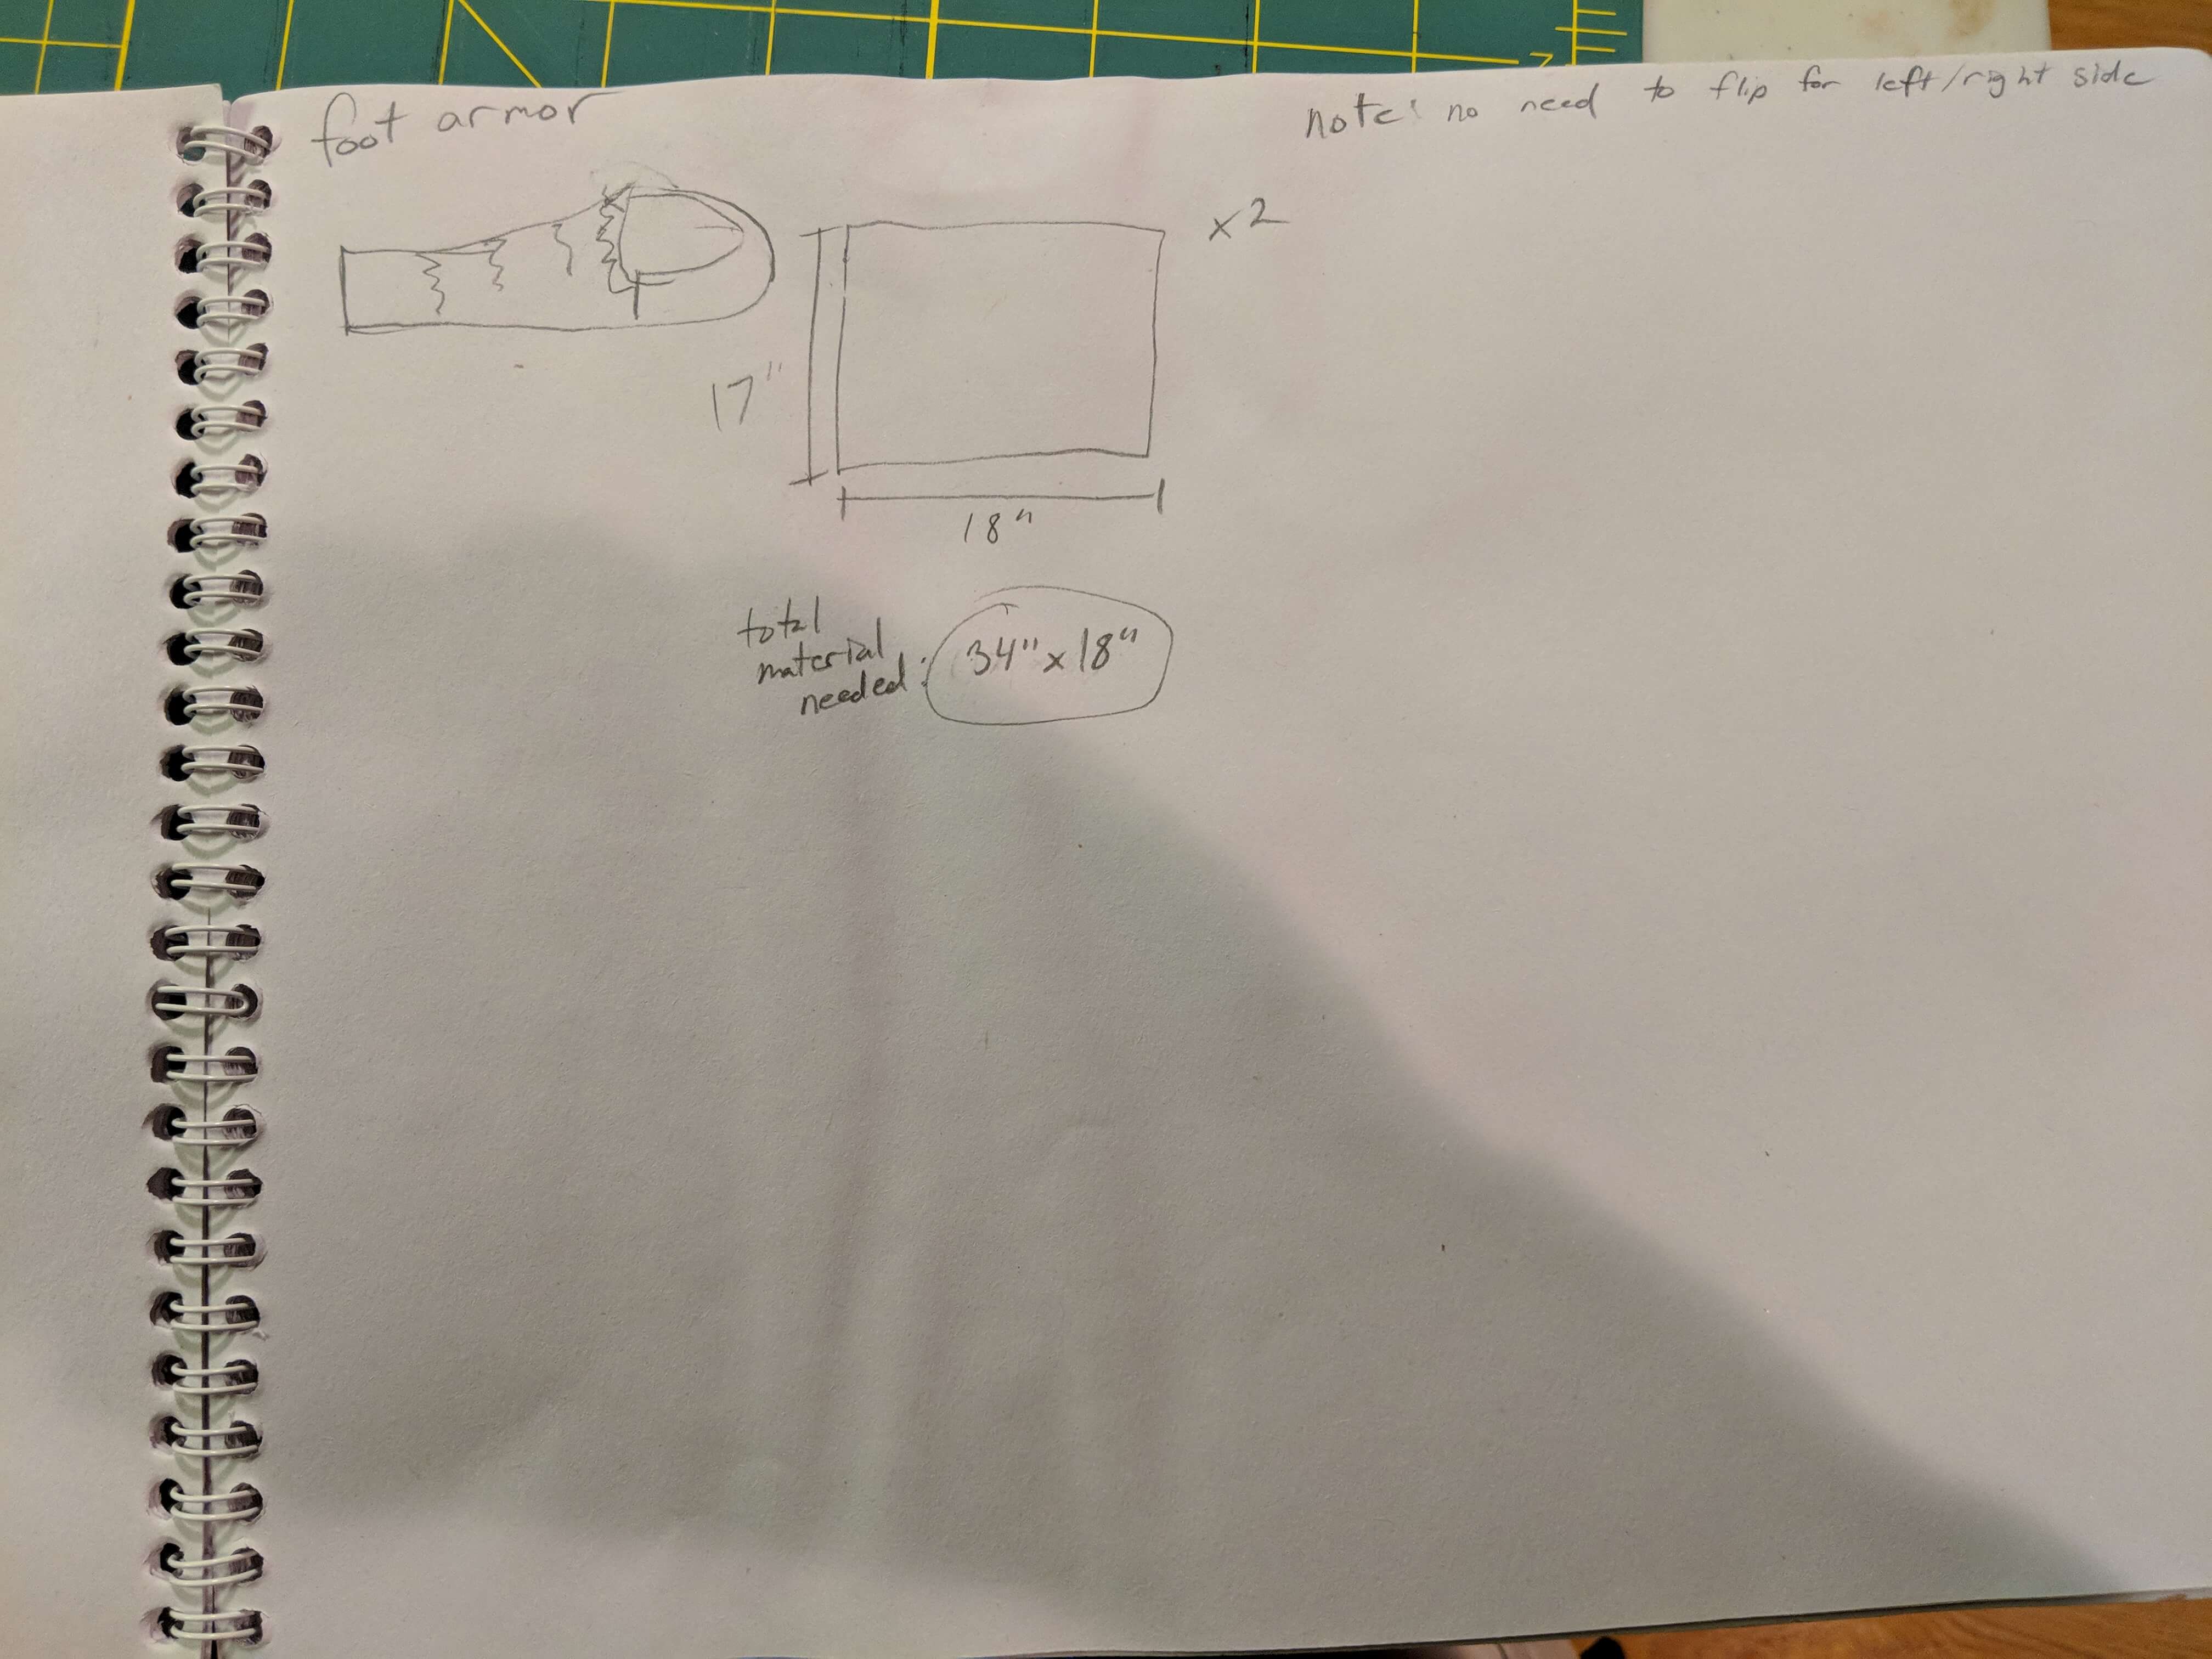 foot armor
note: no need to flip for left/right side
x2
17"
18"
total
material
needed:
34" x 18"